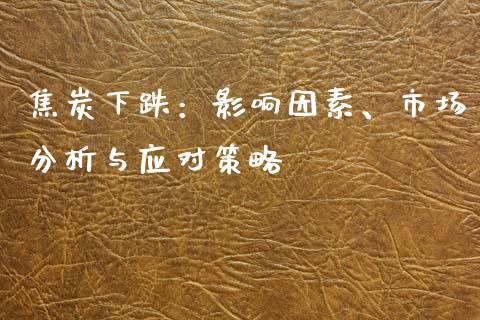 焦炭下跌：影响因素、市场
分析与应对策略